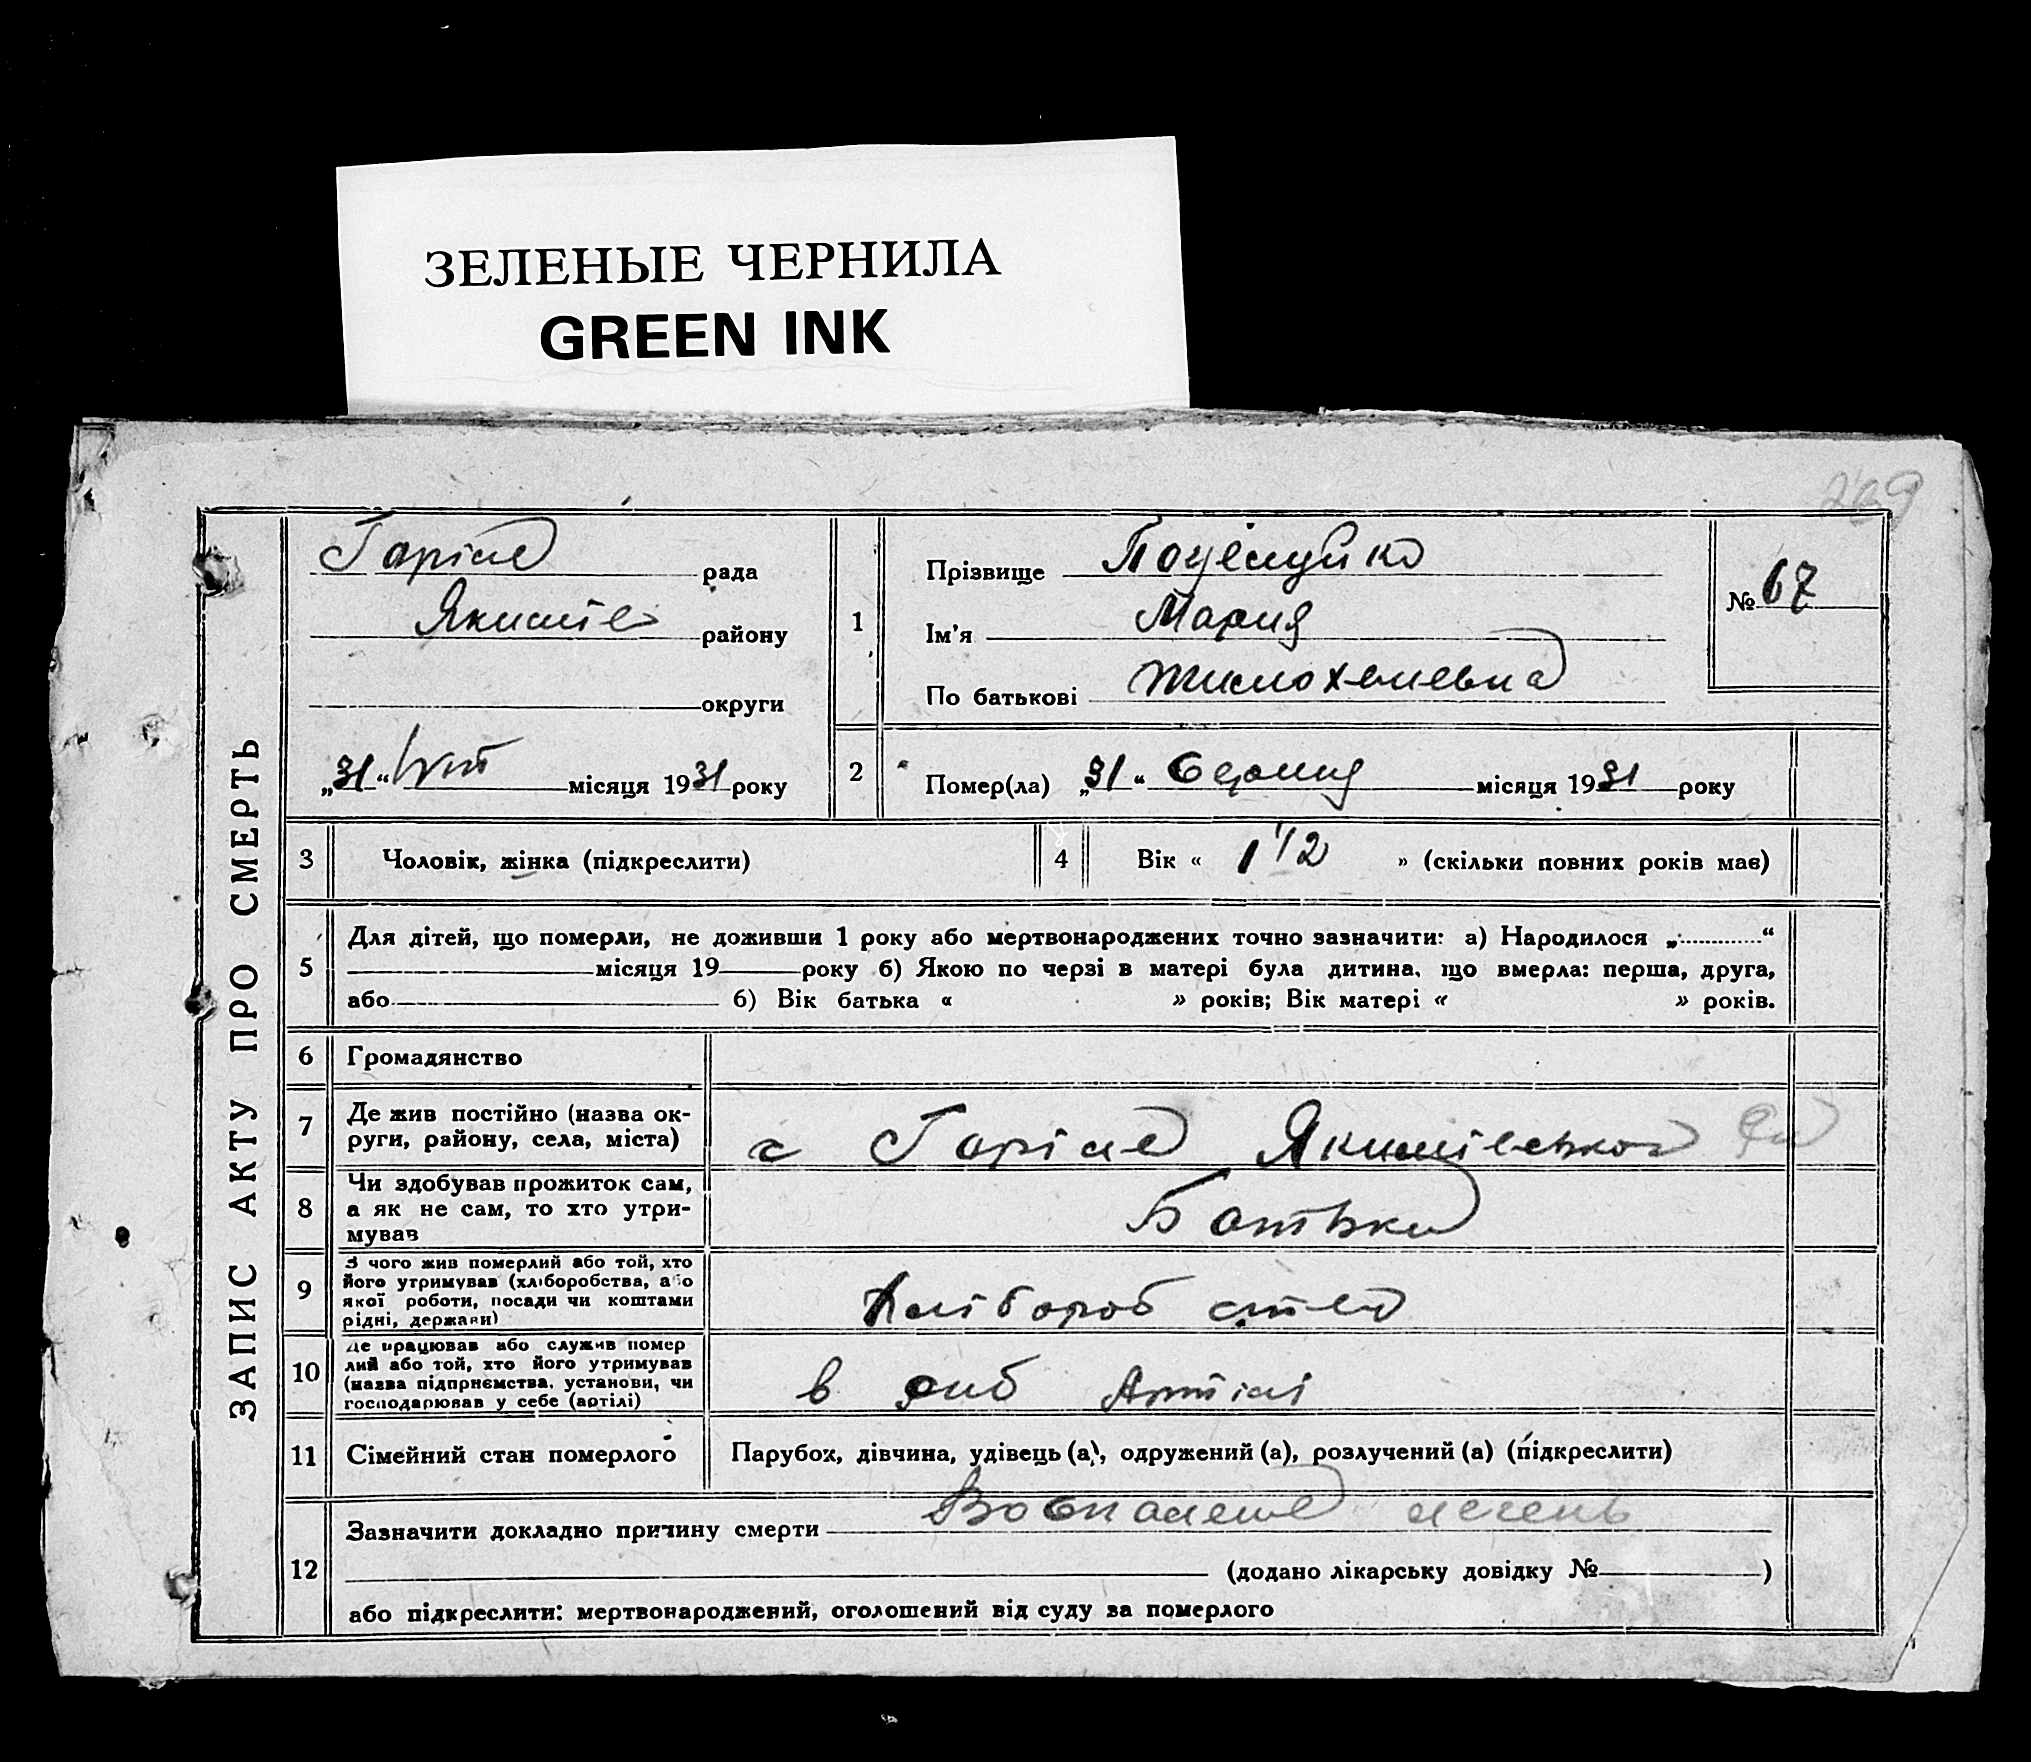 ЗЕЛЕНЫЕ ЧЕРНИЛА
GREEN INK
269
ЗАПИС АКТУ ПРО СМЕРТЬ
рада
району
округи
„31“ VIII місяця 1931 року
1
Прізвище
Ім'я Мария
По батькові
№ 67
2
Помер(ла) „31“ Серпня місяця 1931 року
3 Чоловік, жінка (підкреслити)
4 Вік « 1 1/2 » (скільки повних років має)
5
Для дітей, що померли, не доживши 1 року або мертвонароджених точно зазначити: а) Народилося „ “
місяця 19 року б) Якою по черзі в матері була дитина, що вмерла: перша, друга,
або б) Вік батька « » років; Вік матері « » років.
6 Громадянство
7 Де жив постійно (назва ок-
руги, району, села, міста)
с Горіле Якимівського
8 Чи здобував прожиток сам,
а як не сам, то хто утри-
мував
Батьки
9 З чого жив померлий або той, хто
його утримував (хліборобства, або
якої роботи, посади чи коштами
рідні, держави)
10 Де працював або служив помер
лий або той, хто його утримував
(назва підприємства, установи, чи
господарював у себе (артілі)
в риб Артілі
11 Сімейний стан померлого
Парубох, дівчина, удівець (а), одружений (а), розлучений (а) (підкреслити)
12
Зазначити докладно причину смерти
(додано лікарську довідку № )
або підкреслити: мертвонароджений, оголошений від суду за померлого